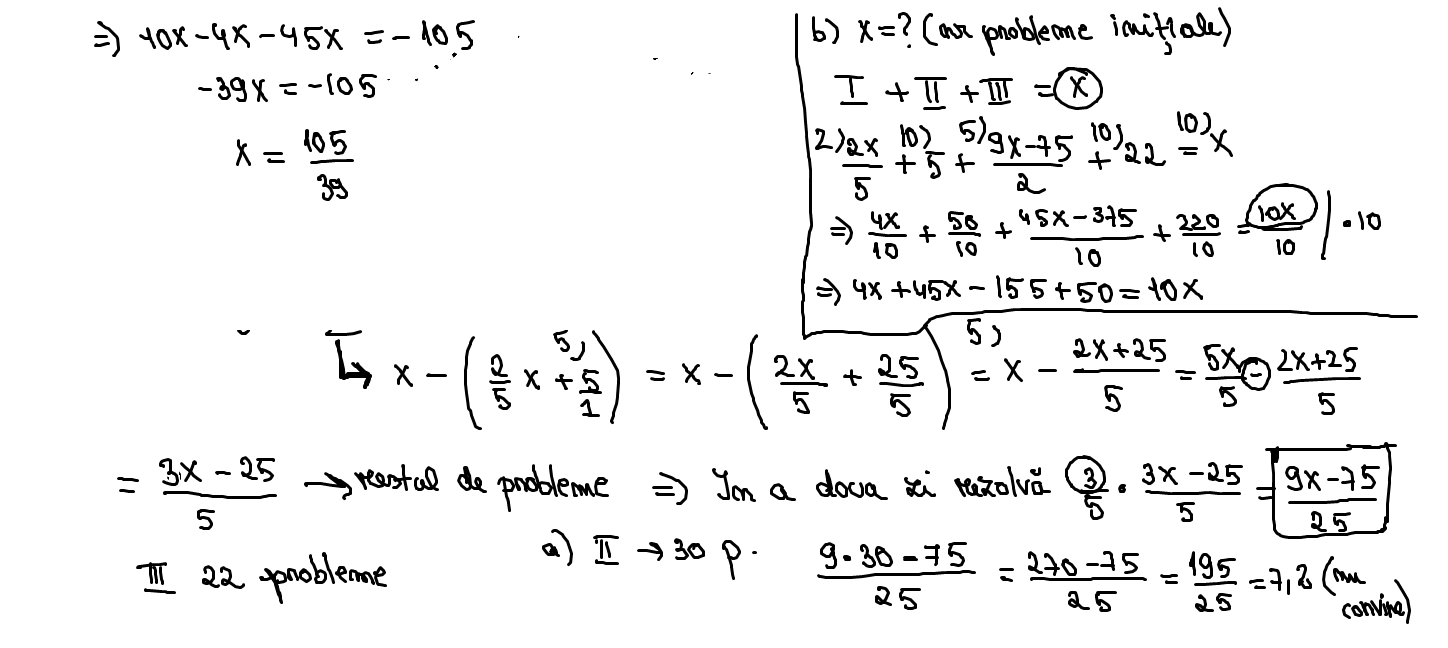 ⇒) 10x-4x-45x = -105
-39x = -105
x = 105/39
b) x=? (nr probleme inițiale)
I + II + III = x
2) 2x/5 + 10) 5 + 5) 9x-75/2 + 10) 22 = 10) x
⇒) 4x/10 + 50/10 + 45x-375/10 + 220/10 = 10x/10 | · 10
⇒) 4x+45x-155+50=10x
↳ x - (2/5 x + 5) 5/1) = x - (2x/5 + 25/5) = 5) x - 2x+25/5 = 5x/5 - 2x+25/5
= 3x-25/5 → restul de probleme ⇒) În a doua zi rezolvă 3/5 · 3x-25/5 = 9x-75/25
III 22 probleme
a) II → 30 p. 9·30-75/25 = 270-75/25 = 195/25 = 7,8 (nu convine)